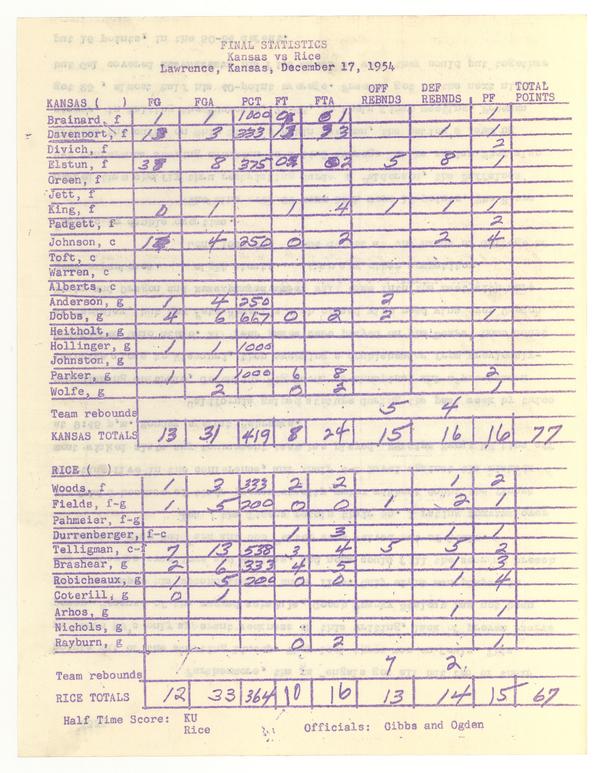 FINAL STATISTICS
Kansas vs Rice
Lawrence, Kansas, December 17, 1954
KANSAS ( ) FG FGA PCT FT FTA OFF REBNDS DEF REBNDS PF TOTAL POINTS
Brainard, f 1 1 1000 0 1 1
Davenport, f 1 3 333 1 3 1 1
Divich, f 2
Elstun, f 3 8 375 0 2 5 8 1
Green, f
Jett, f
King, f 0 1 1 4 1 1 1
Padgett, f 2
Johnson, c 1 4 250 0 2 2 4
Toft, c
Warren, c
Alberts, c
Anderson, g 1 4 250 2
Dobbs, g 4 6 667 0 2 2 1
Heitholt, g
Hollinger, g 1 1 1000
Johnston, g
Parker, g 1 1 1000 6 8 2
Wolfe, g 2 0 2 1
Team rebounds 5 4
KANSAS TOTALS 13 31 419 8 24 15 16 16 77
RICE ( )
Woods, f 1 3 333 2 2 1 2
Fields, f-g 1 5 200 0 0 1 2 1
Pahmeier, f-g
Durrenberger, f-c 1 3 1 1
Telligman, c-f 7 13 538 3 4 5 5 2
Brashear, g 2 6 333 4 5 1 3
Robicheaux, g 1 5 200 0 0 1 4
Coterill, g 0 1
Arhos, g 1 1
Nichols, g
Rayburn, g 0 2 1
Team rebounds 7 2
RICE TOTALS 12 33 364 10 16 13 14 15 67
Half Time Score: KU
Rice Officials: Gibbs and Ogden